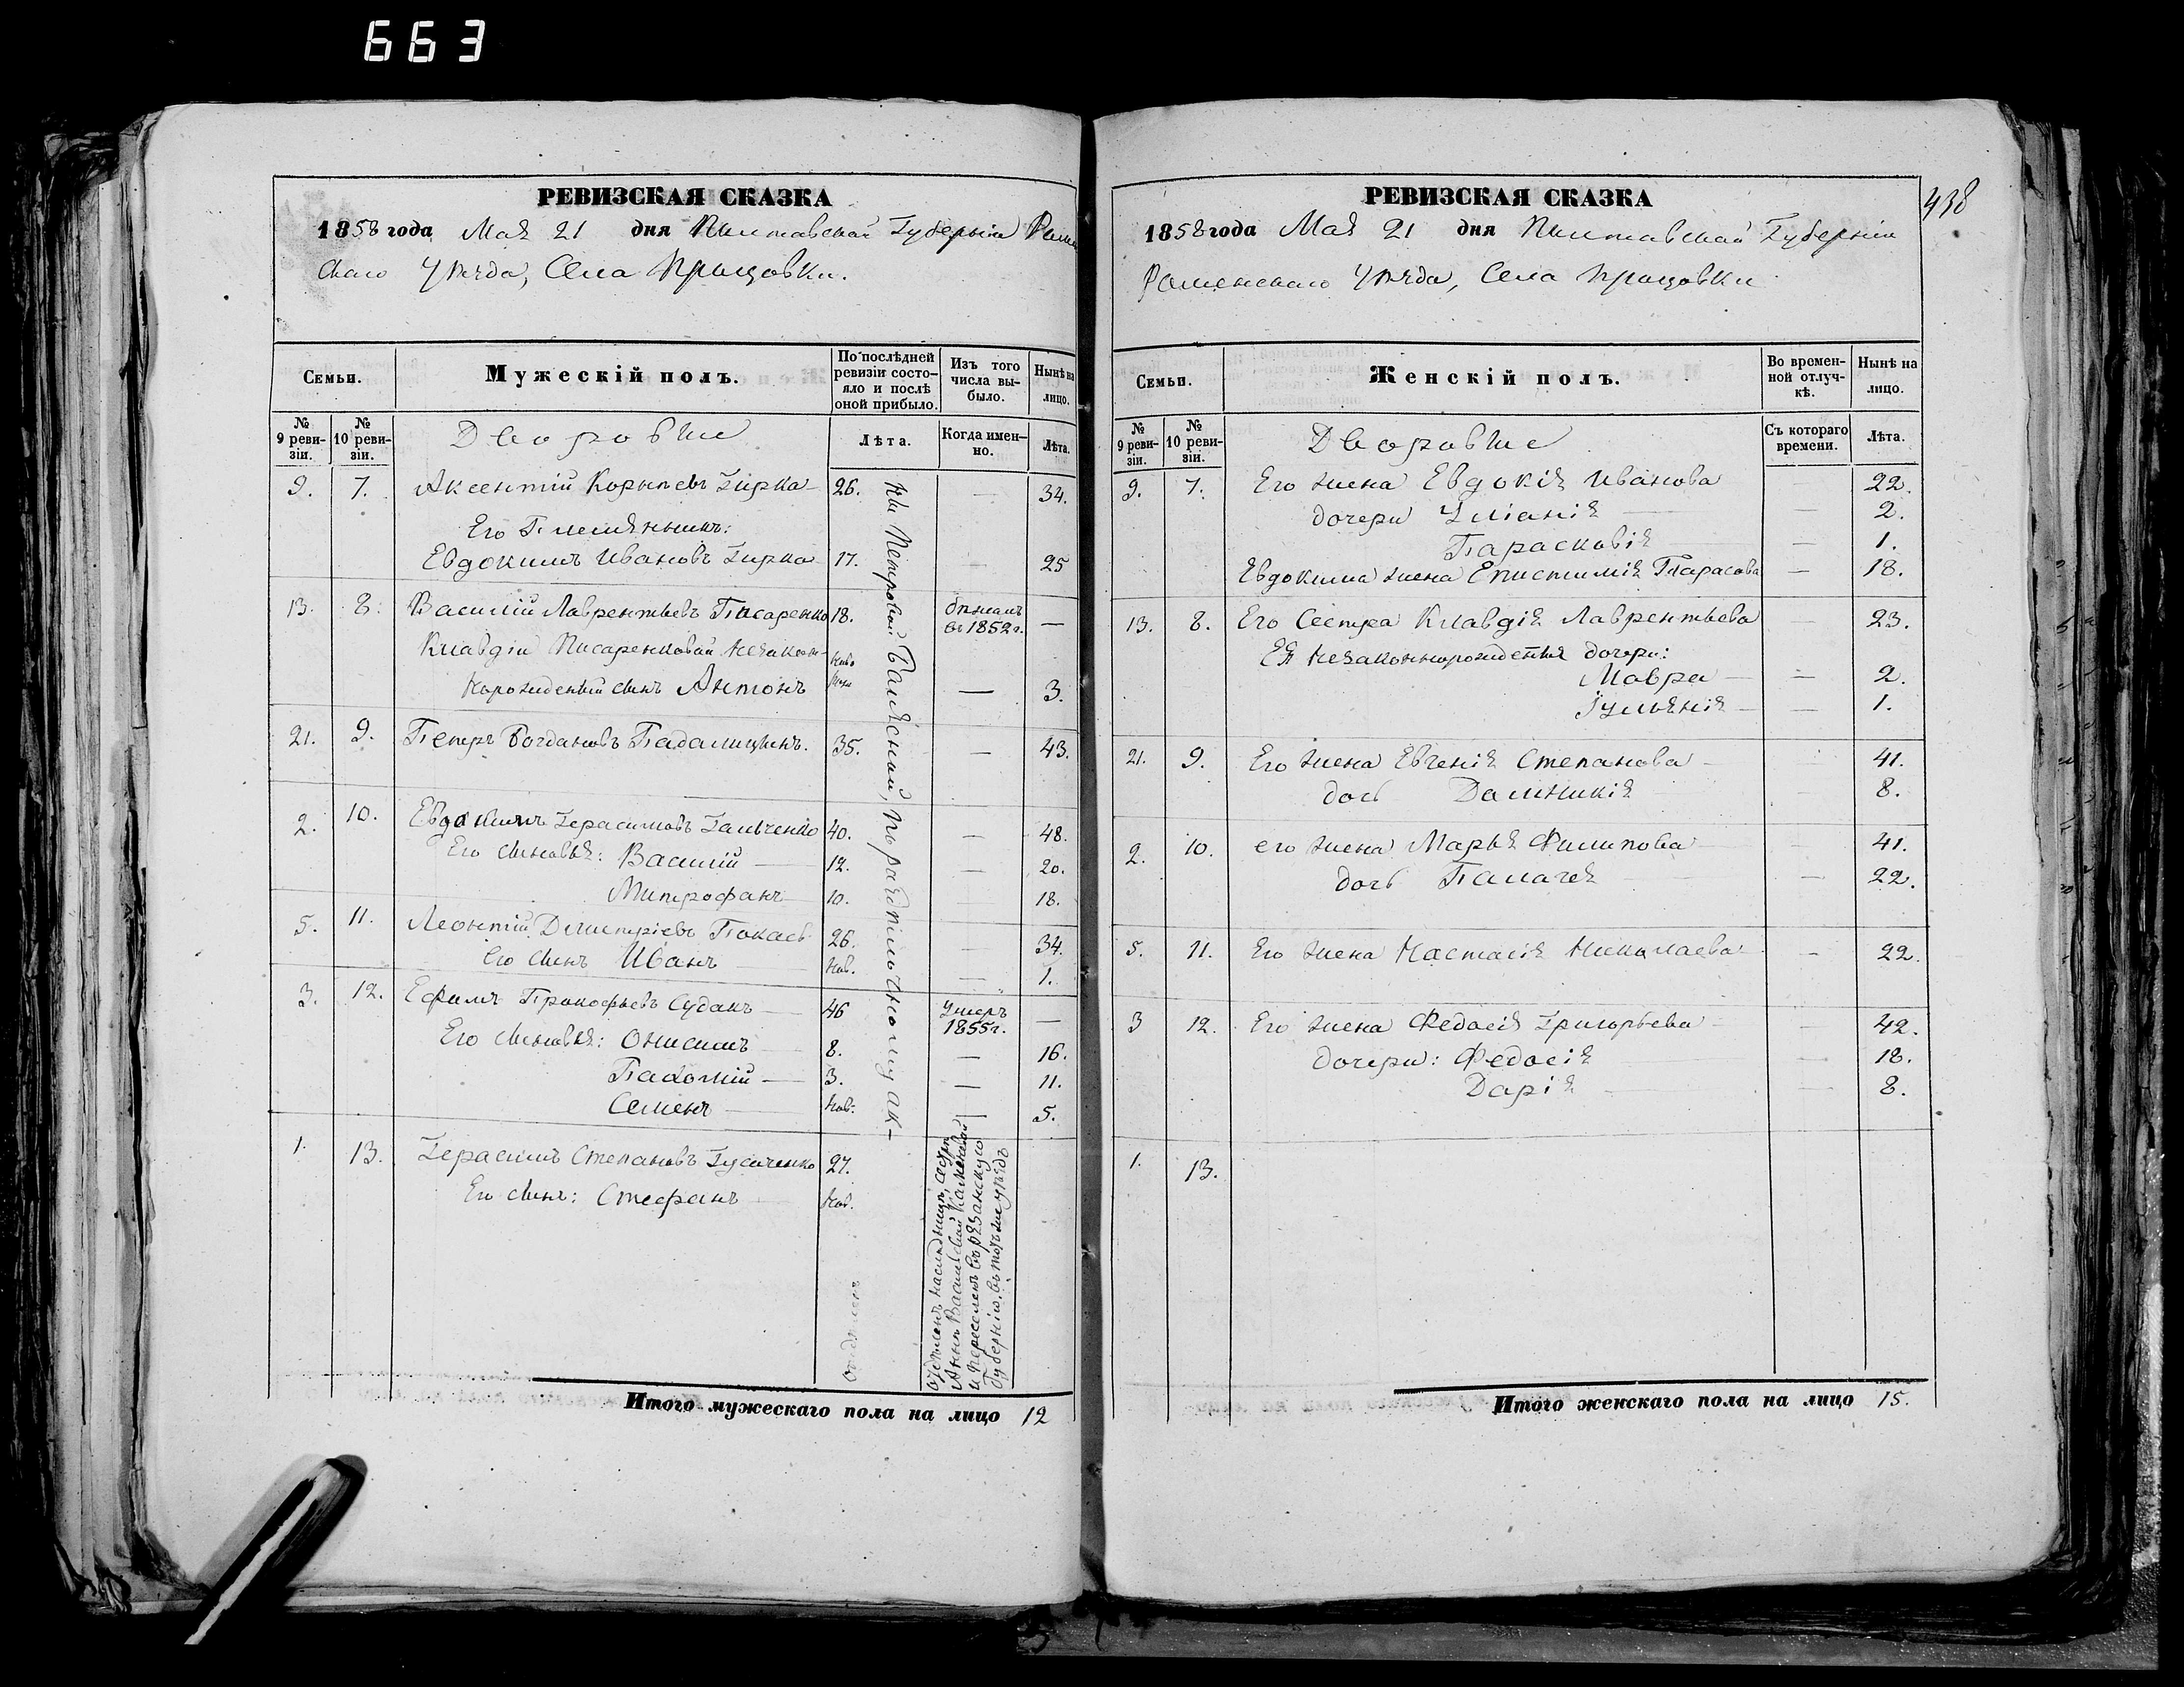 663
РЕВИЗСКАЯ СКАЗКА
1858 года Мая 21 дня Полтавской Губерніи Роме
скаго Уѣзда, Села
Семьи.
Мужескій полъ.
По послѣдней ревизіи состояло и послѣ оной прибыло.
Изъ того числа выбыло.
Нынѣ на лицо.
№ 9 ревизіи.
№ 10 ревизіи.
Дворовые
Лѣта.
Когда именно.
Лѣта.
9. 7. Аксентій Корнѣевъ Гирка 26. — 34.
Его Племянникъ:
Евдокимъ Ивановъ Гирка 17. — 25
13. 8. Василій Лаврентьевъ Писаренко 18. бѣжалъ въ 1852 г. —
Клавдіи Писаренковой незакон-
норожденный сынъ Антонъ — 3.
21. 9. Петръ Богдановъ 35. — 43.
2. 10. Евдокимъ Герасимовъ Гальченко 40. — 48.
Его сыновья: Василій 12. — 20.
Митрофанъ 10. — 18.
5. 11. Леонтій Дмитріевъ 26. — 34.
Его сынъ Иванъ Нов. — 1.
3. 12. Ефимъ Прокофьевъ Судакъ 46 Умеръ 1855 г. —
Его сыновья: Онисимъ 8. — 16.
Пахомій 3. — 11.
Семенъ Нов. — 5.
1. 13. Герасимъ Степановъ Гусаченко 27.
Его сынъ: Стефанъ Нов.
по раздѣльному ак-
Аннѣ Васильевой
и переселенъ въ Рязанскую
Губернію, въ тотъ же уѣздъ
Итого мужескаго пола на лицо 12
438
РЕВИЗСКАЯ СКАЗКА
1858 года Мая 21 дня Полтавской Губерніи
Роменскаго Уѣзда, Села
Семьи.
Женскій полъ.
Во временной отлучкѣ.
Нынѣ на лицо.
№ 9 ревизіи.
№ 10 ревизіи.
Дворовые
Съ котораго времени.
Лѣта.
9. 7. Его жена Евдокія Иванова — 22.
дочери Уліанія — 2.
Парасковія — 1.
Евдокима жена Епистимія Тарасова — 18.
13. 8. Его Сестра Клавдія Лаврентьева — 23.
Ея незаконнорожденныя дочери:
Мавра — 2.
Іульянія — 1.
21. 9. Его жена Евгенія Степанова — 41.
дочь Домникія — 8.
2. 10. его жена Марья Филипова — 41.
дочь Палагея — 22.
5. 11. Его жена Настасія Николаева — 22.
3 12. Его жена Федосія Григорьева — 42.
дочери: Федосія — 18.
Дарія — 8.
1. 13.
Итого женскаго пола на лицо 15.